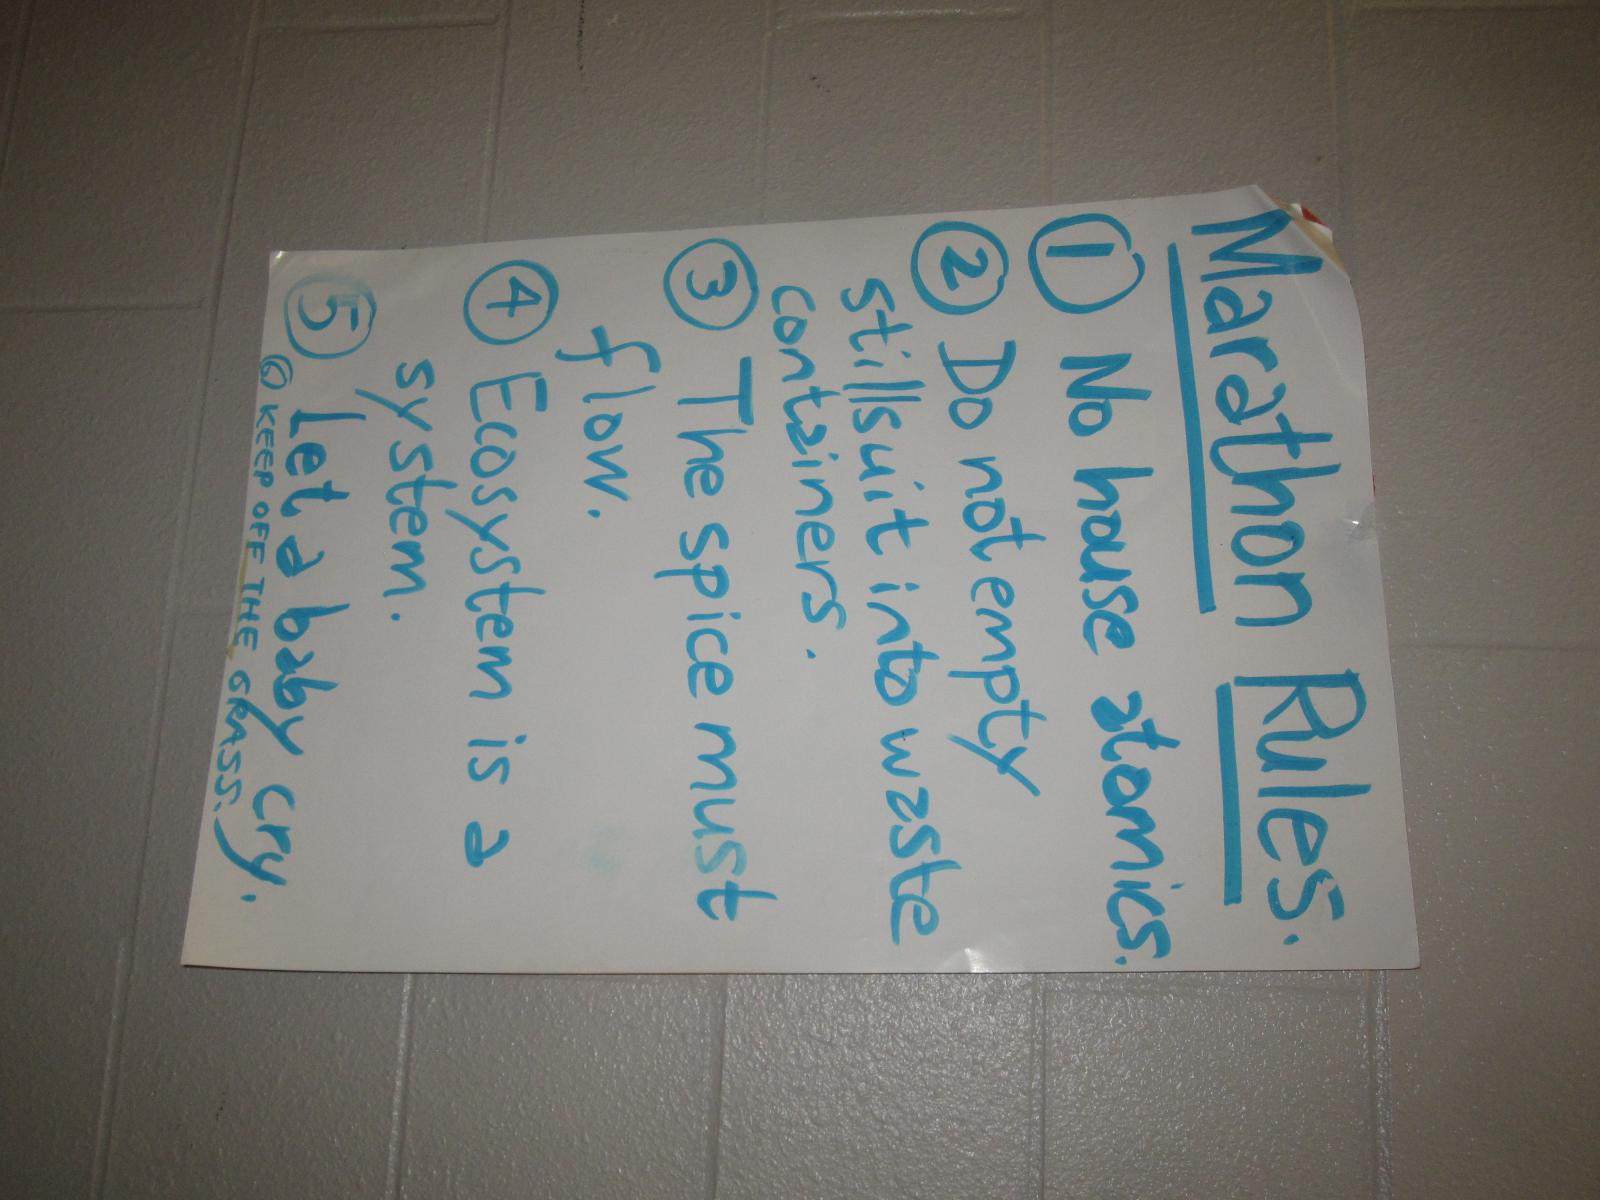 Marathon Rules.
① No house atomics.
② Do not empty
stillsuit into waste
containers.
③ The spice must
flow.
④ Ecosystem is a
system.
⑤ Let a baby cry.
⑥ KEEP OFF THE GRASS.